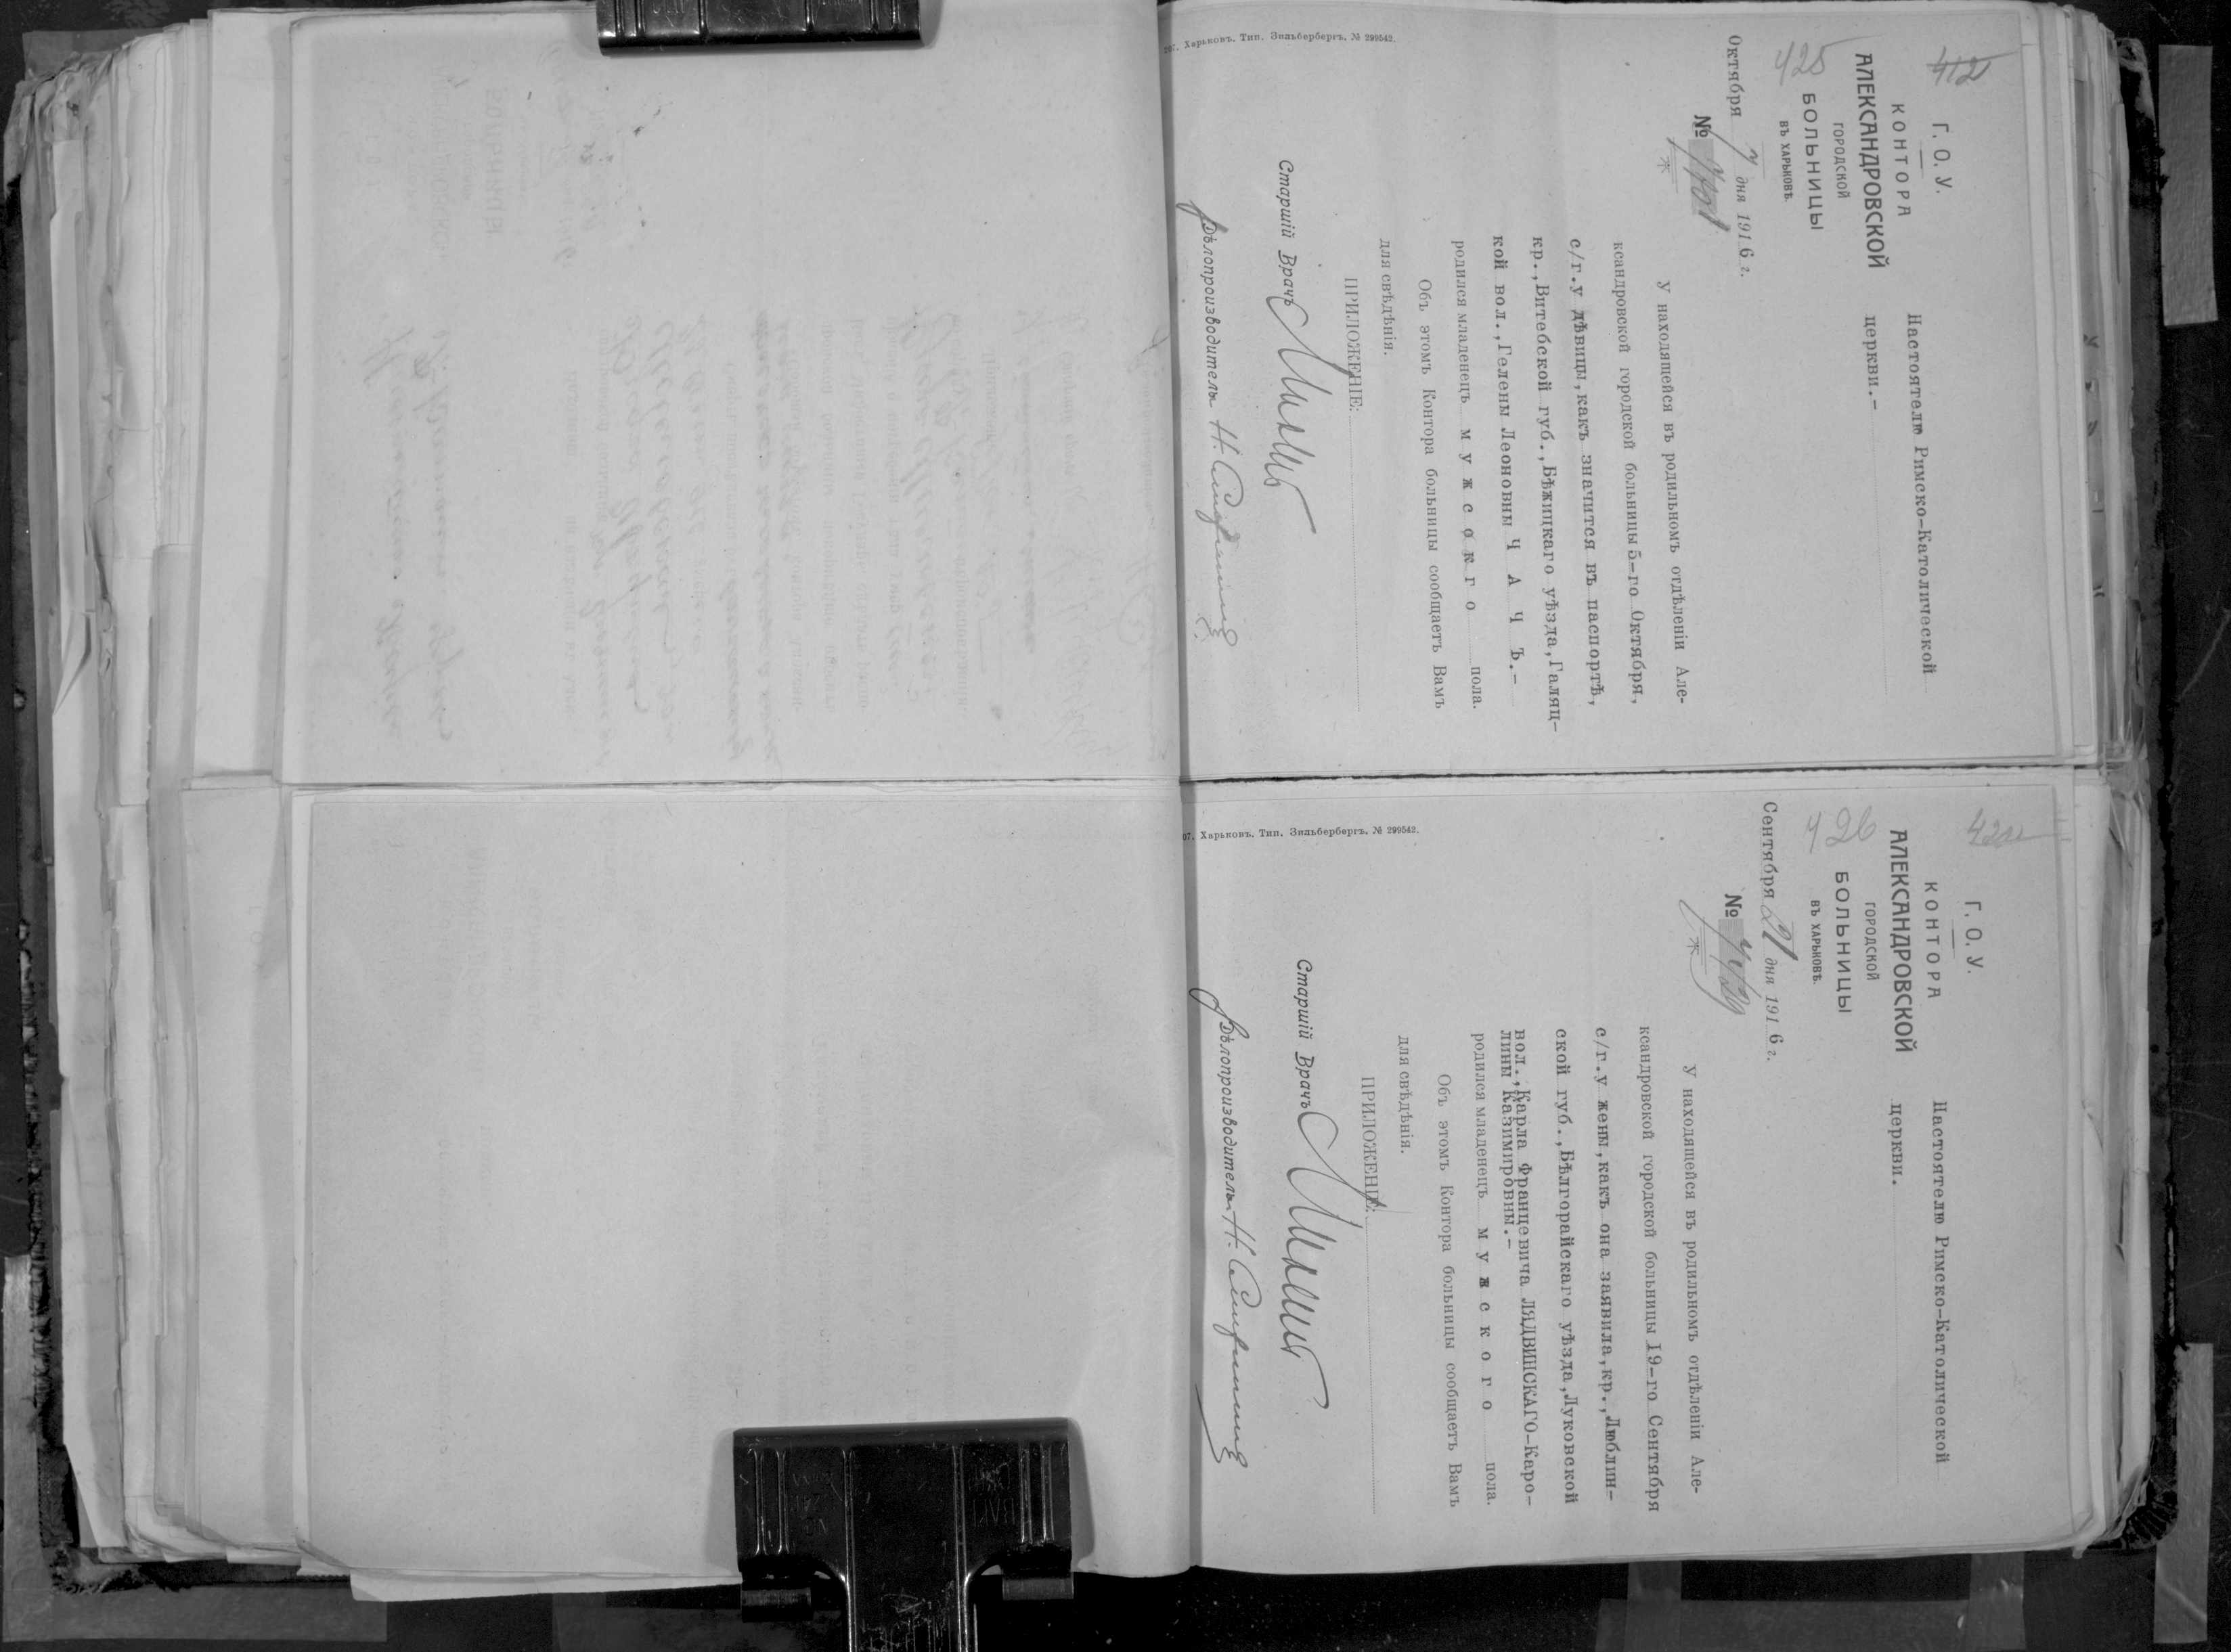 412
Г. О. У.
КОНТОРА
АЛЕКСАНДРОВСКОЙ
ГОРОДСКОЙ
БОЛЬНИЦЫ
ВЪ ХАРЬКОВѢ.
425
Октября 7 дня 1916 г.
№
Настоятелю Римско-Католической
церкви.-
У находящейся въ родильномъ отдѣленіи Але-
ксандровской городской больницы 5-го Октября,
с/г.у дѣвицы,какъ значится въ паспортѣ,
кр.,Витебской губ.,Бѣжицкаго уѣзда,Галяц-
кой вол.,Гелены Леоновны Ч А Ч Ъ.-
родился младенецъ м у ж с о к г о пола.
Объ этомъ Контора больницы сообщаетъ Вамъ
для свѣдѣнія.
ПРИЛОЖЕНІЕ:
Старшій Врачъ
Дѣлопроизводитель Н.
207. Харьковъ. Тип. Зильбербергъ. № 299542.
424
Г. О. У.
КОНТОРА
АЛЕКСАНДРОВСКОЙ
ГОРОДСКОЙ
БОЛЬНИЦЫ
ВЪ ХАРЬКОВѢ.
426
Сентября 21 дня 1916 г.
№
Настоятелю Римско-Католической
церкви.
У находящейся въ родильномъ отдѣленіи Але-
ксандровской городской больницы 19-го Сентября
с/г.у жены,какъ она заявила,кр.,Люблин-
ской губ.,Бѣлгорайскаго уѣзда,Луковской
вол.,Карла Францевича ЛЯДВИНСКАГО-Каро-
лины Казимировны.-
родился младенецъ м у ж с к о г о пола.
Объ этомъ Контора больницы сообщаетъ Вамъ
для свѣдѣнія.
ПРИЛОЖЕНІЕ:
Старшій Врачъ
Дѣлопроизводитель Н.
07. Харьковъ. Тип. Зильбербергъ. № 299542.